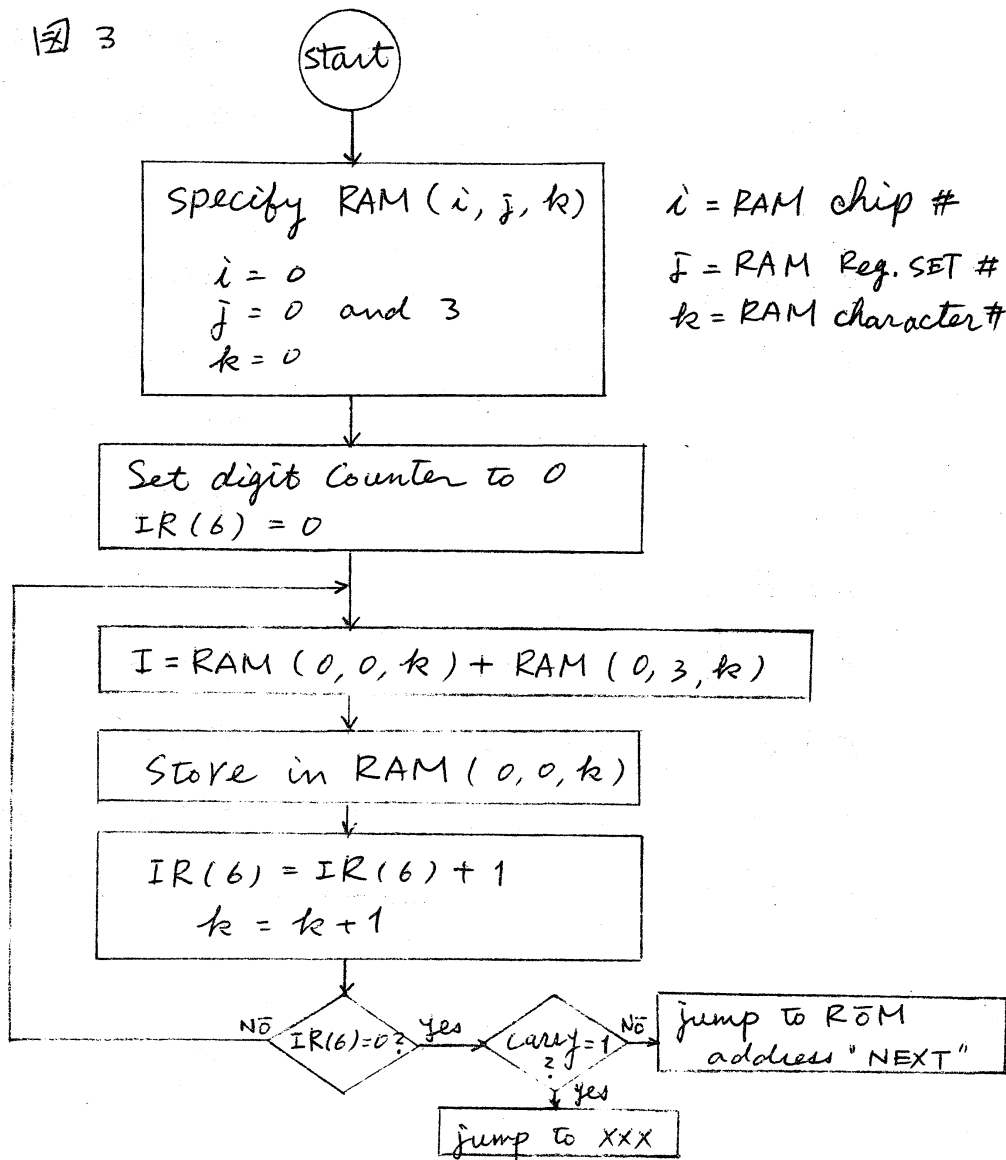 図 3
start
specify RAM (i, j, k)
i = 0
j = 0 and 3
k = 0
i = RAM chip #
j = RAM Reg. SET #
k = RAM character #
Set digit Counter to 0
IR(6) = 0
I = RAM (0, 0, k) + RAM (0, 3, k)
Store in RAM (0, 0, k)
IR(6) = IR(6) + 1
k = k + 1
NO
IR(6)=0?
yes
carry=1
?
NO
yes
jump to ROM
address "NEXT"
jump to XXX